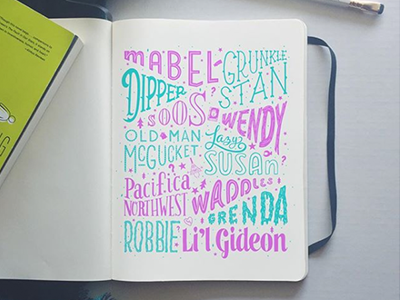 MABEL
GRUNKLE
STAN
DIPPER
SOOS
WENDY
OLD MAN
MCGUCKET
Lazy
SUSAN
Pacifica
NORTHWEST
WADDLES
GRENDA
ROBBIE
Li'l Gideon